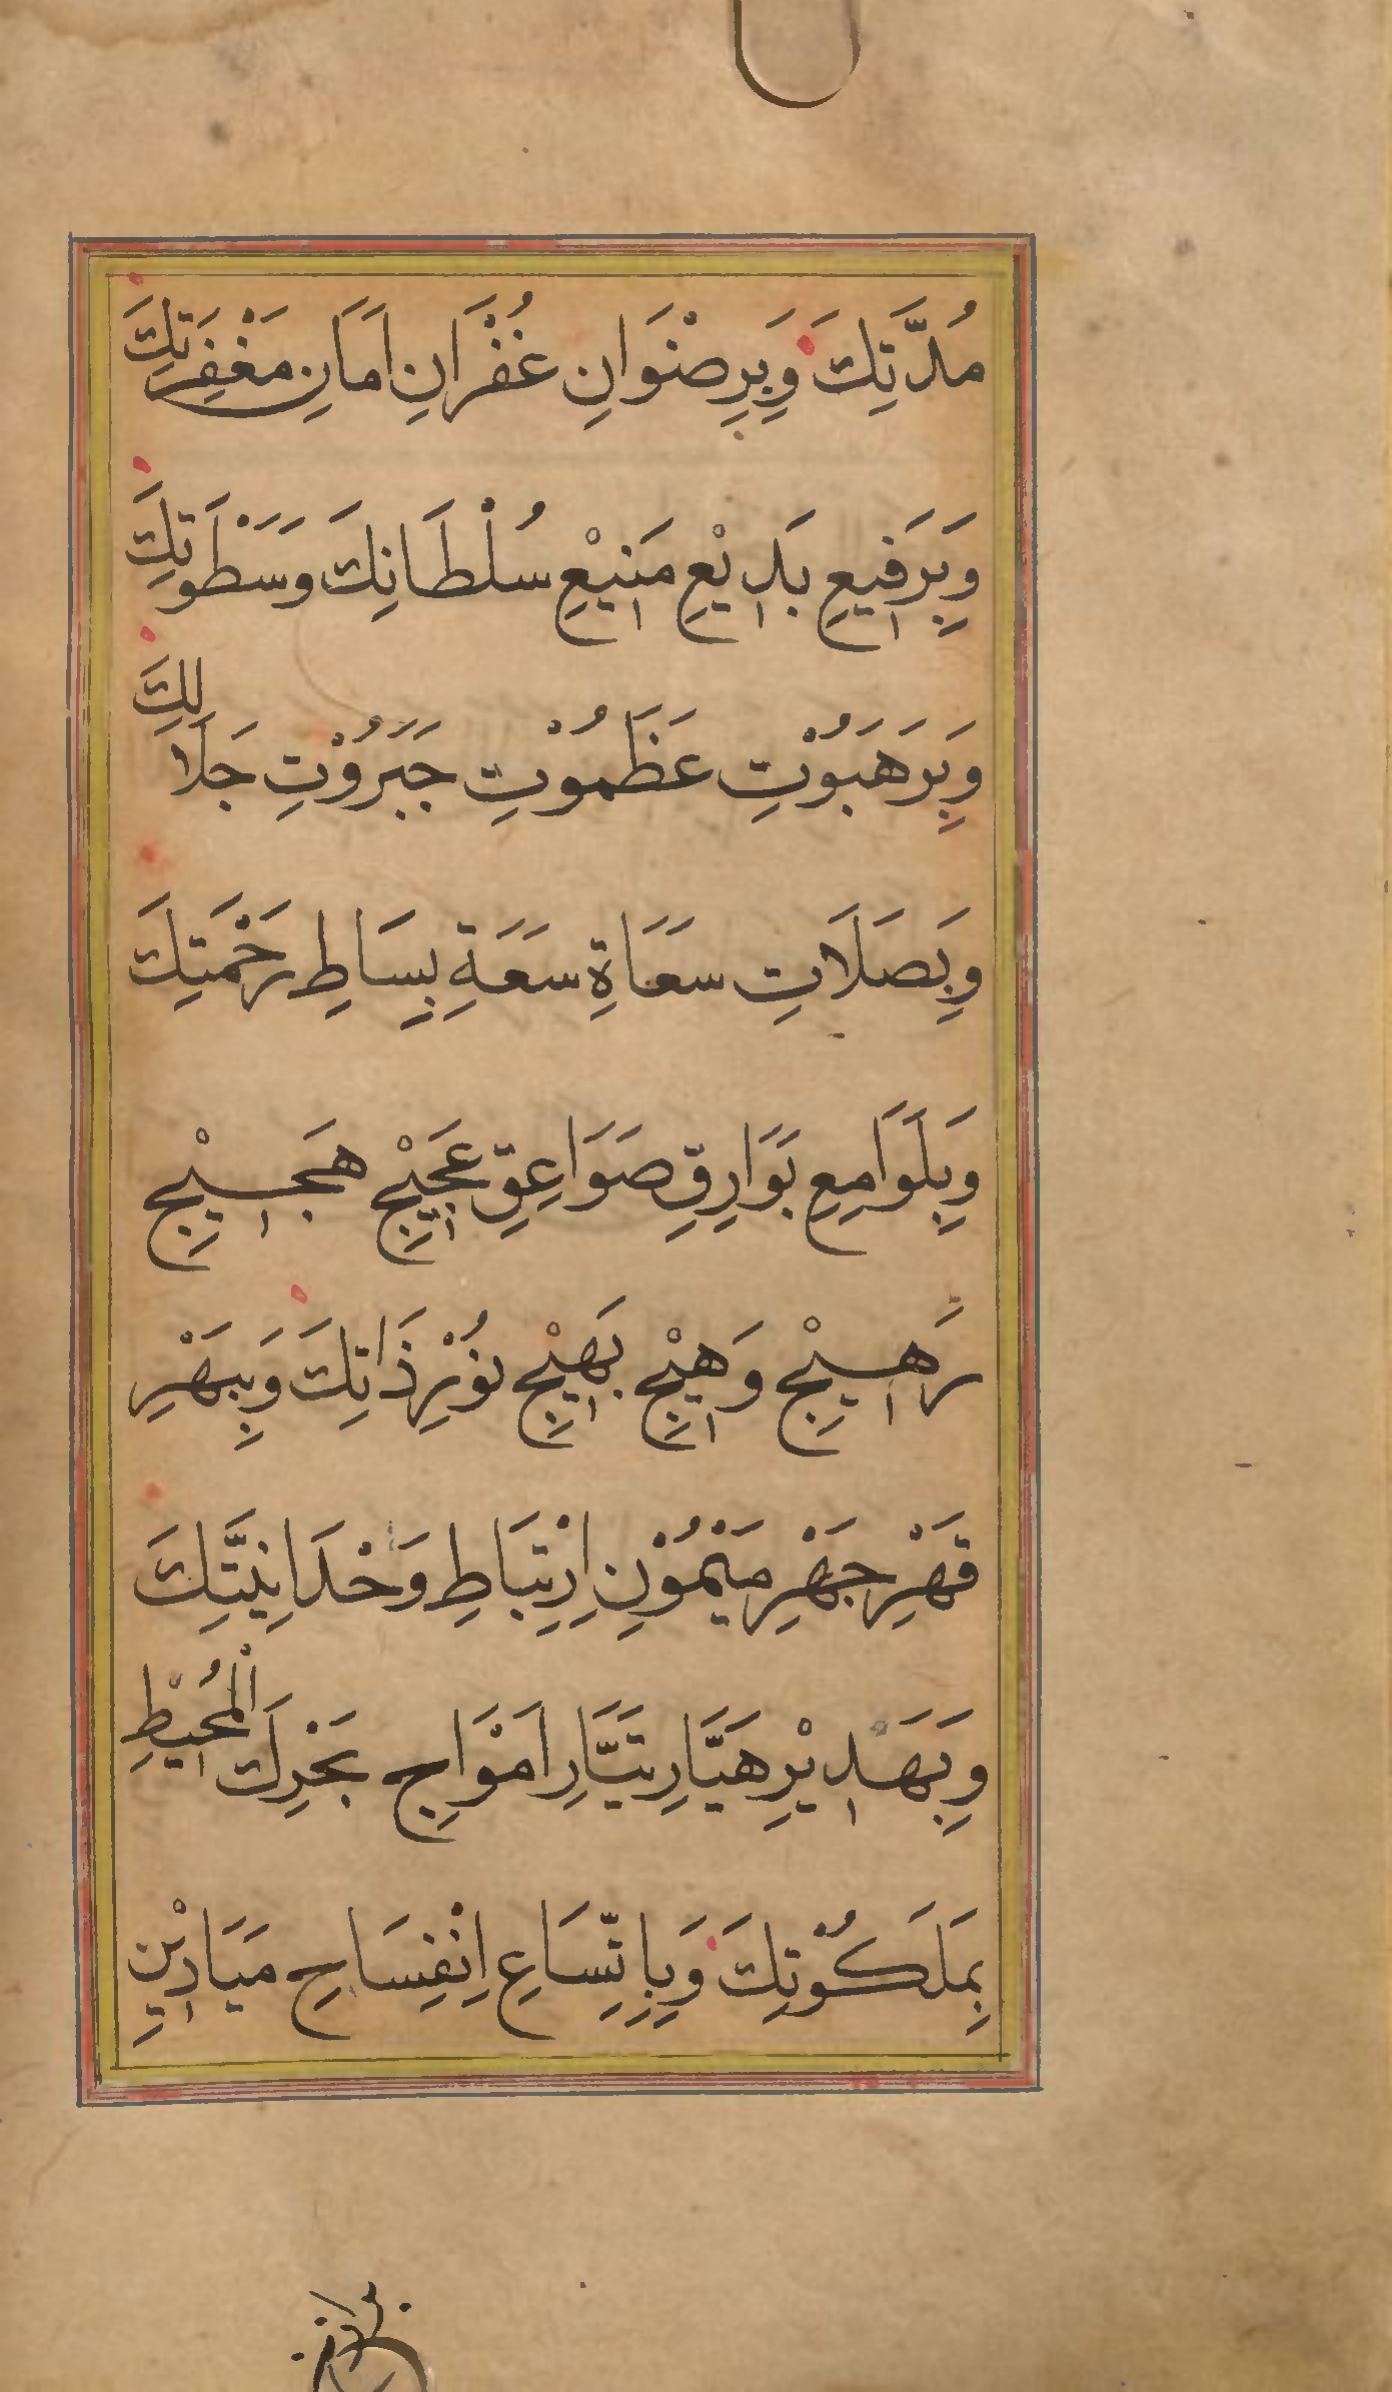 مُدَّتِكَ وَبِرِضْوَانِ غُفْرَانِ اَمَانِ مَغْفِرَتِكَ
وَبِرَفِيعِ بَدِيْعِ مَنِيْعِ سُلْطَانِكَ وَسَطْوَتِكَ
وَبِرَهَبُوْتِ عَظَمُوْتِ جَبَرُوْتِ جَلَالِكَ
وَبِصَلَاتِ سَعَاةِ سَعَةِ بِسَاطِ رَحْمَتِكَ
وَبِلَوَامِعِ بَوَارِقِ صَوَاعِقِ عَجِيْجِ هَجِيْجِ
رَهِيْجِ وَهِيْجِ بَهِيْجِ نُوْرِ ذَاتِكَ وَبِبَهْرِ
قَهْرِ جَهْرِ مَيْمُوْنِ اِرْتِبَاطِ وَحْدَانِيَّتِكَ
وَبِهَدِيْرِ هَيَّارِ تَيَّارِ اَمْوَاجِ بَحْرِكَ الْمُحِيْطِ
بِمَلَكُوْتِكَ وَبِاِتِّسَاعِ اِنْفِسَاحِ مَيَادِيْنِ